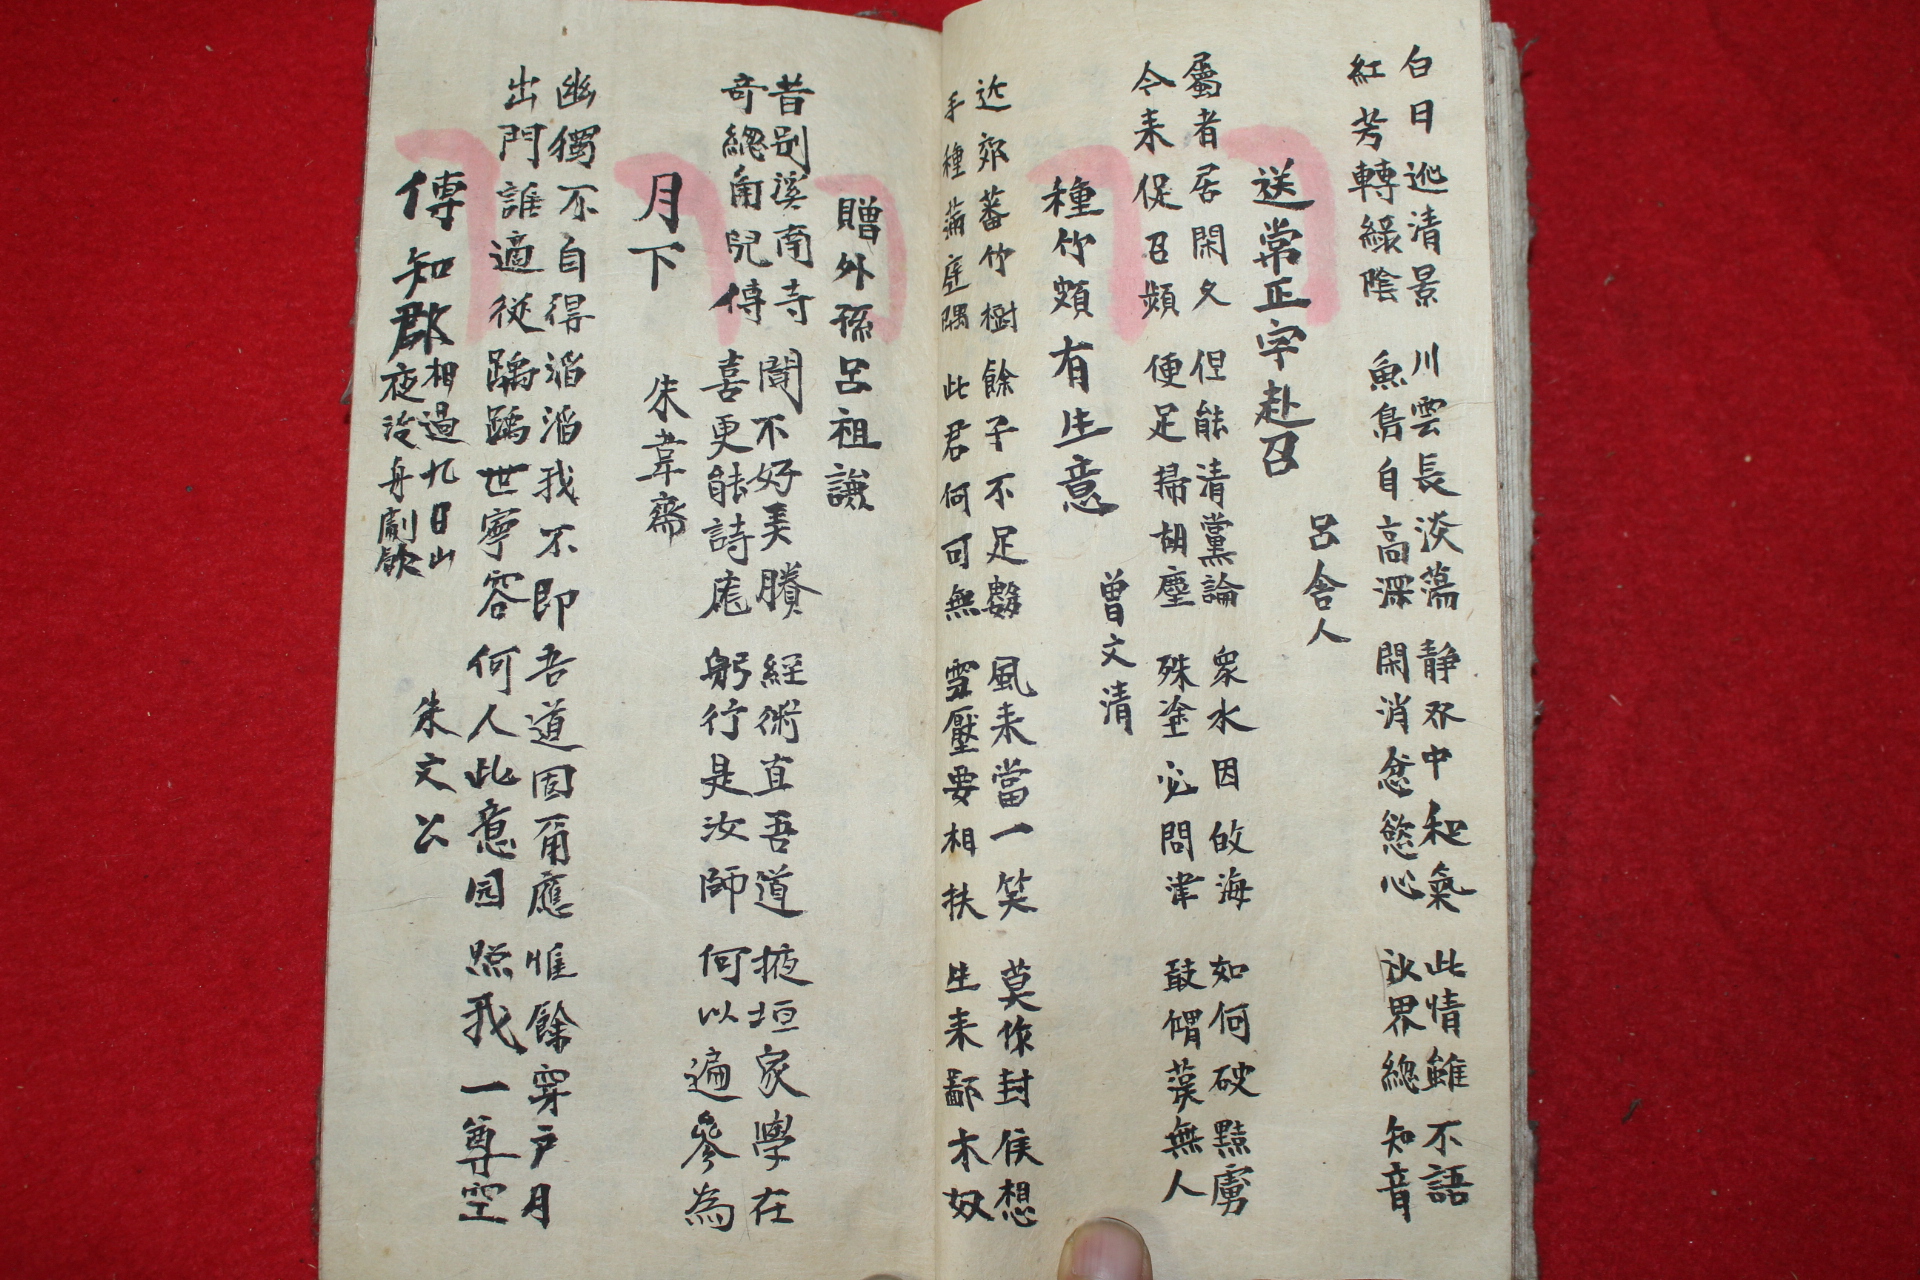 白日巡清景 川雲長淡蕩 靜㸔中和氣 此情雖不語
紅芳轉綠陰 魚鳥自高深 閑消忿慾心 沙界總知音
送常正字赴召 呂舍人
屬者居閑久 但能清黨論 衆水因敀海 如何破黠虜
令来促召頻 便足掃胡塵 殊塗必問津 敢謂漢無人
種竹頗有生意 曾文清
近郊蕃竹樹 餘子不足數 風来當一笑 莫作封侯想
手種滿庭隅 此君何可無 雪壓要相扶 生来鄙木奴
贈外孫呂祖謙
昔別溪南寺 聞不好美賸 經術直吾道 掖垣家學在
奇總角兒傳 喜更能詩處 躬行是汝師 何以遍參為
月下 朱韋齋
幽獨不自得 滔滔我不即 吾道固甭應 惟餘穿戶月
出門誰適從 踽踽世寧容 何人此意同 照我一尊空
傅知郡 相過九日山
夜泛舟劇飲 朱文公